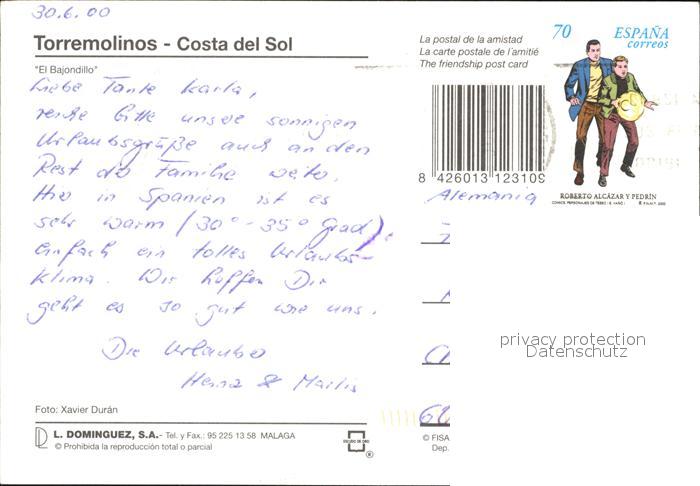 30.6.00
Torremolinos - Costa del Sol
"El Bajondillo"
Liebe Tante Karla,
reiche bitte unsere sonnigen
Urlaubsgrüße auch an den
Rest der Familie weiter.
Hier in Spanien ist es
sehr warm (30° - 35° Grad).
einfach ein tolles Urlaubs-
klima. Wir hoffen Dir
geht es so gut wie uns.
Die Urlauber
Heinz & Marlis
Foto: Xavier Durán
L. DOMINGUEZ, S.A.- Tel. y Fax.: 95 225 13 58 MALAGA
© Prohibida la reproducción total o parcial
ESCUDO DE ORO
®
La postal de la amistad
La carte postale de l'amitié
The friendship post card
8 426013 123109
70 ESPAÑA
correos
ROBERTO ALCÁZAR Y PEDRÍN
Alemania
privacy protection
Datenschutz
© FISA
Dep.